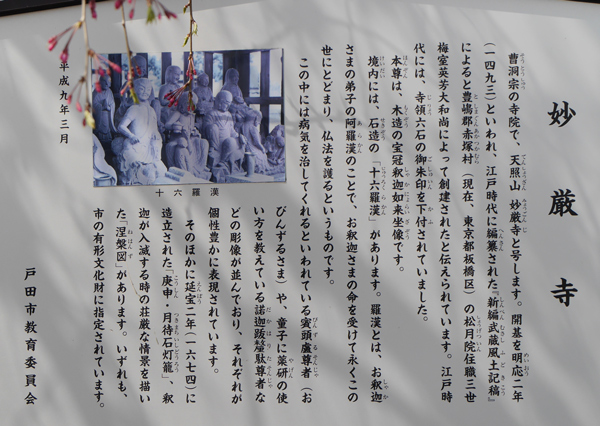 妙厳寺
曹洞宗の寺院で、天照山 妙厳寺と号します。開基を明応二年
(一四九三)といわれ、江戸時代に編纂された『新編武蔵風土記稿』
によると豊嶋郡赤塚村(現在、東京都板橋区)の松月院住職三世
梅室英芳大和尚によって創建されたと伝えられています。江戸時
代には、寺領六石の御朱印を下付されていました。
本尊は、木造の宝冠釈迦如来坐像です。
境内には、石造の「十六羅漢」があります。羅漢とは、お釈迦
さまの弟子の阿羅漢のことで、お釈迦さまの命を受けて永くこの
世にとどまり、仏法を護るというものです。
この中には病気を治してくれるといわれている賓頭盧尊者(お
びんずるさま)や、童子に薬研の使
い方を教えている諾迦跋釐駄尊者な
どの彫像が並んでおり、それぞれが
個性豊かに表現されています。
そのほかに延宝二年(一六七四)に
造立された「庚申・月待石灯籠」、釈
迦が入滅する時の荘厳な情景を描い
た『涅槃図』があります。いずれも、
市の有形文化財に指定されています。
十六羅漢
平成九年三月
戸田市教育委員会